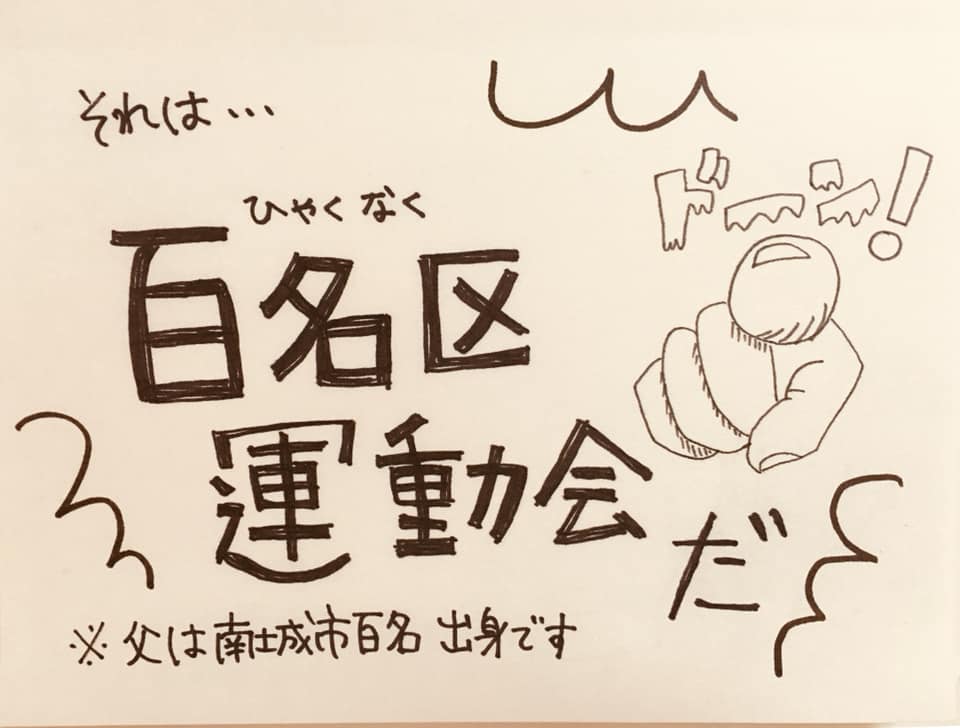 それは…
ドーン!
ひゃく なく
百名区
運動会
だ
※ 父は南城市百名 出身です